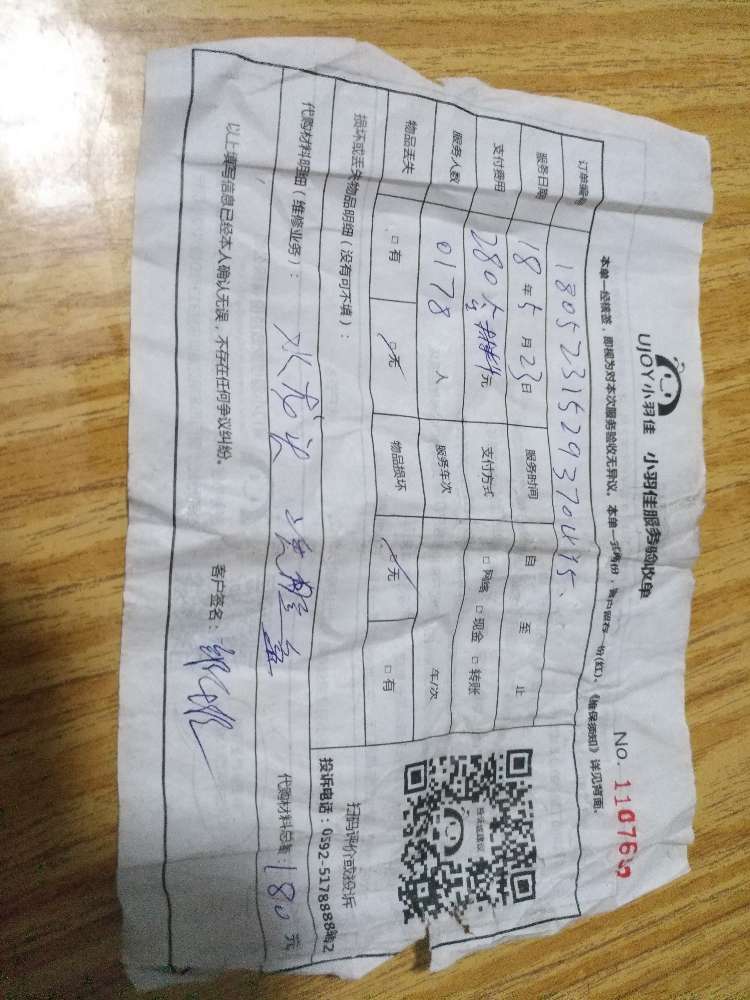 UJOY小羽佳 小羽佳服务验收单
No. 110765
本单一经核签，即视为对本次服务验收无异议。本单一式两份，客户留存一份(红)，《维保须知》详见背面。
订单编号 1805231529370415
服务日期 18年5月23日 服务时间 自 至 止
支付费用 280含材料元 支付方式 □网络 □现金 □转账
服务人数 0178 人 服务车次 车/次
物品丢失 □有 ☑无 物品损坏 ☑无 □有
损坏或丢失物品明细（没有可不填）：
投诉或建议
扫码评价或投诉
投诉电话：0592-5178888转2
代购材料明细（维修业务）： 水龙头 洗脸盆 代购材料总额：180元
以上填写信息已经本人确认无误，不存在任何争议纠纷。 客户签名：